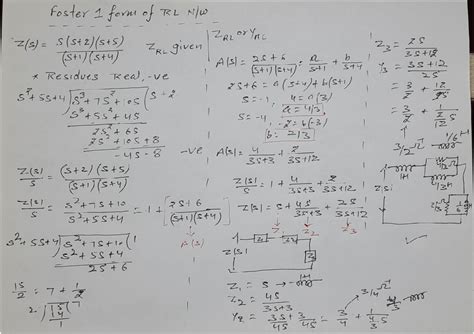 Foster 1 form of RL N/W
Z(s) = s(s+2)(s+5)
(s+1)(s+4)
Z_RL given
* Residues Real, -ve
s²+5s+4 ) s³ + 7s² + 10s ( s-2
s³ + 5s² + 4s
2s² + 6s
2s² + 10s + 8
-4s - 8
-ve
Z(s)/s = (s+2)(s+5)
(s+1)(s+4)
Z(s)/s = s² + 7s + 10 / s² + 5s + 4 = 1 + [ 2s + 6 / (s+1)(s+4) ]
A(s)
s²+5s+4 ) s² + 7s + 10 ( 1
s² + 5s + 4
2s + 6
Z_RL or Y_RL
A(s) = 2s+6 / (s+1)(s+4) = a/s+1 + b/s+4
2s+6 = a(s+4) + b(s+1)
s = -1, 4 = a(3)
a = 4/3
s = -4, -2 = b(-3)
b = 2/3
A(s) = 4/3s+3 + 2/3s+12
Z(s)/s = 1 + 4/3s+3 + 2/3s+12
Z(s) = s + 4s/3s+3 + 2s/3s+12
Z₁ Z₂ Z₃
Z(s)
Z₁ = s → 1H
Z₂ = 4s/3s+3
Y₂ = 3s+3/4s = 3/4 + 1/4s
Z₃ = 2s/3s+12
Y₃ = 3s+12/2s
= 3/2 + 12/2s
Z(s)
1H